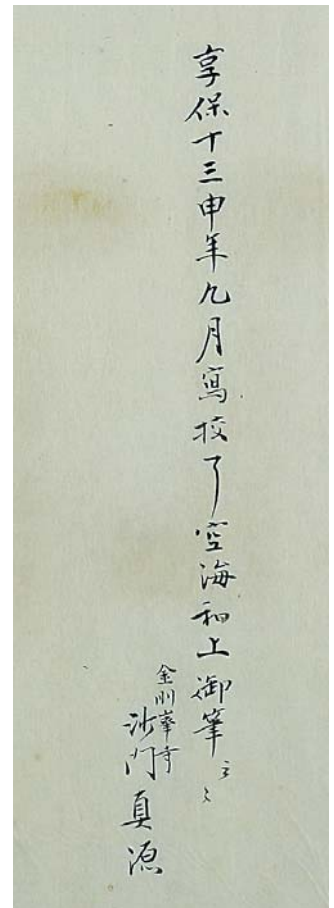 享保十三申年九月寫挍了空海和上御筆云〻
金剛峯寺
沙門真源